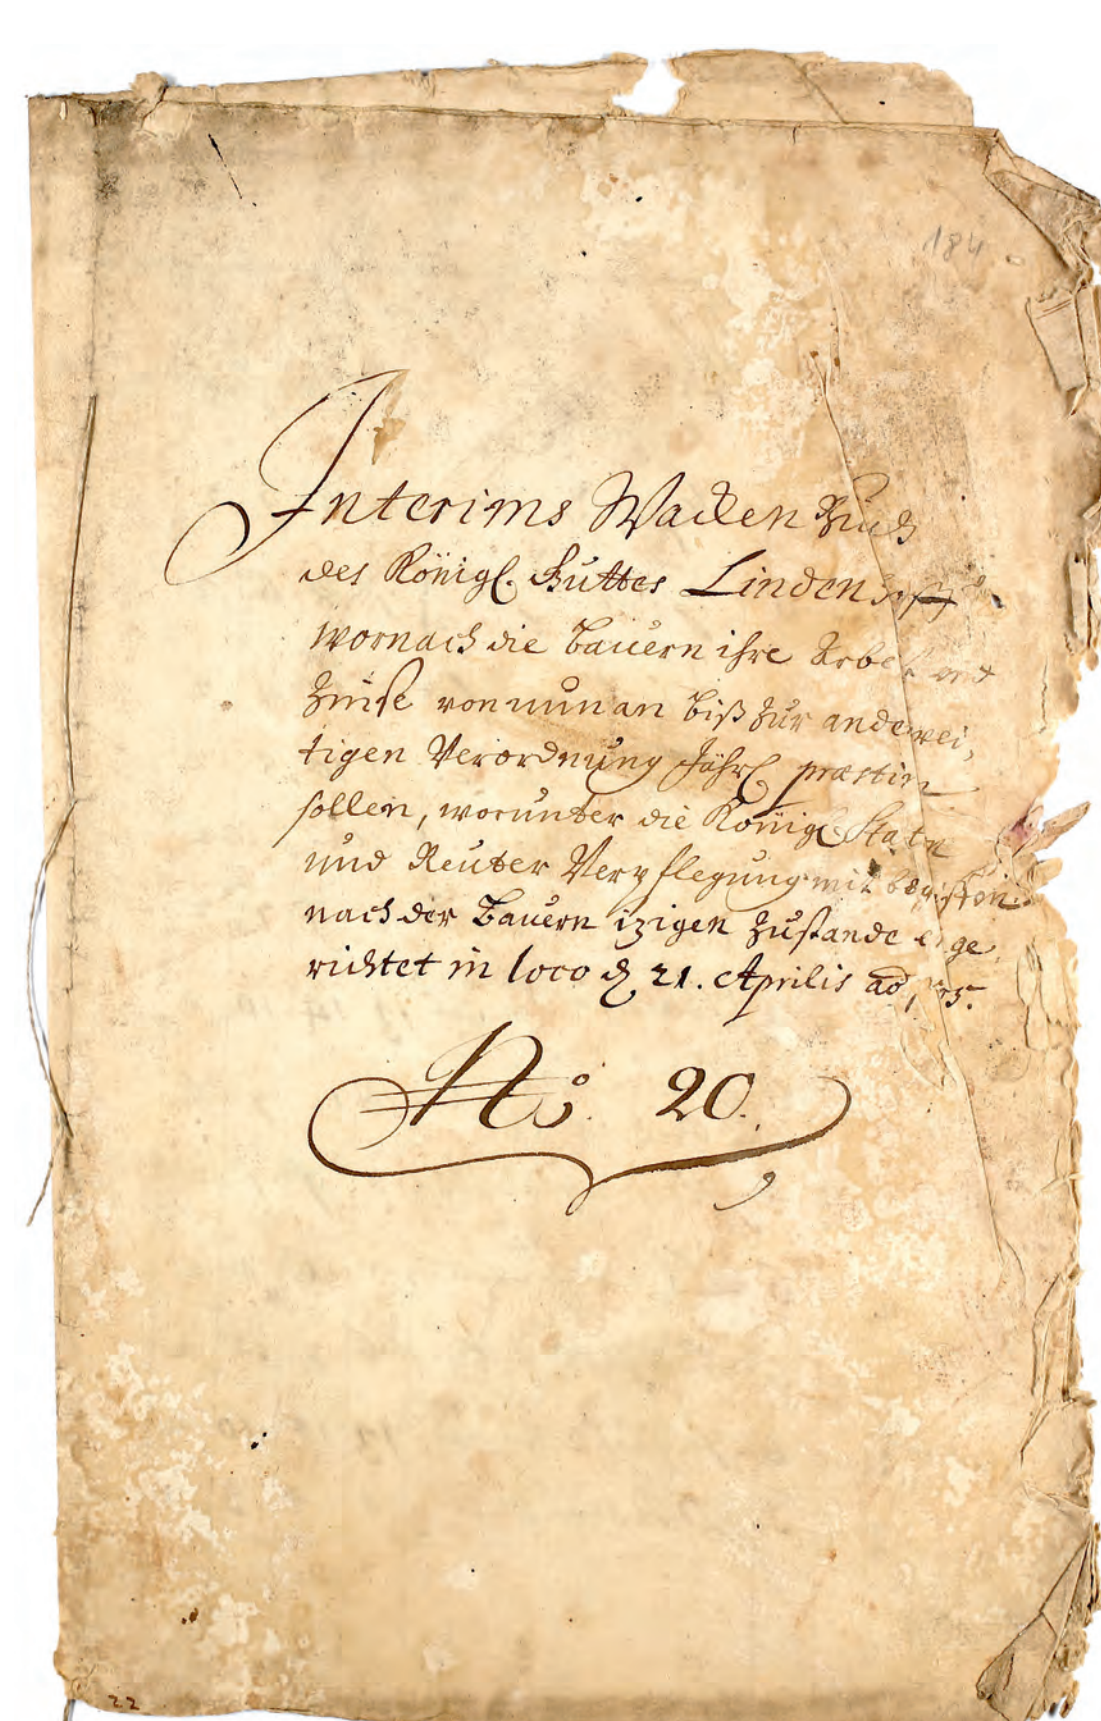 184
Interims Wacken Buch
des Königl. Guttes Lindenhoff
wornach die Bauern ihre Arbeit und
Zinse von nun an biß zur anderwei-
tigen Verordnung Jährl. præstirn
sollen, worunter die Königl. Statn
und Reuter Verpflegung mit begriffen
nach der Bauern izigen Zustande
richtet in loco d. 21. Aprilis ao
No: 20.
22